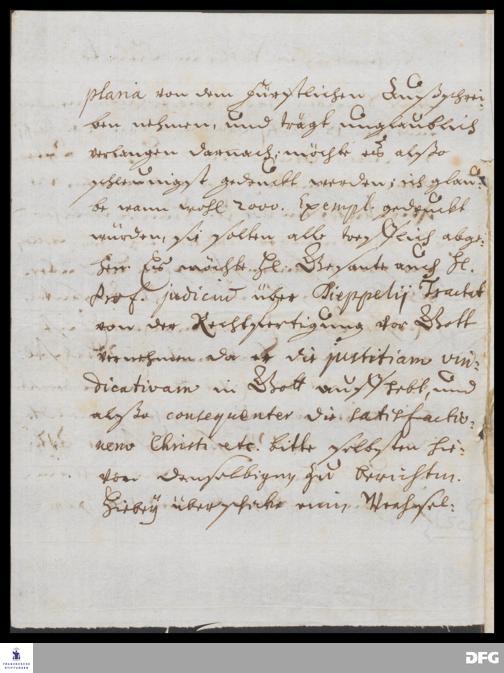 plaria von dem Fürstlichen Außschrei-
ben nehmen, und trägt unglaublich
verlangen darnach; möchte es alßo
schleunigst gedruckt werden; ich glau-
be wann wohl 2000. Exempl. gedruckt
würden, sie solten alle trefflich abge-
hen. Es möchte Hl. Gesante auch Hl.
Prof. judicium über Dieppelij Tractat
von der Rechtfertigung vor Gott
vernehmen da er die justitiam vin-
dicativam in Gott auffhebt, und
alßo consequenter die satisfactio-
nem Christi etc. bitte selbsten hie-
von denselbigen zu berichten.
Hiebey überschicke einen Wechsel-
FRANCKESCHE
STIFTUNGEN
DFG